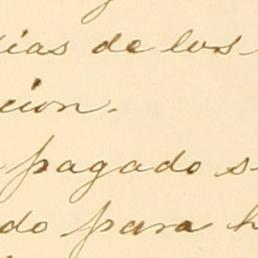 ias de los
cion.
pagado s
do para h